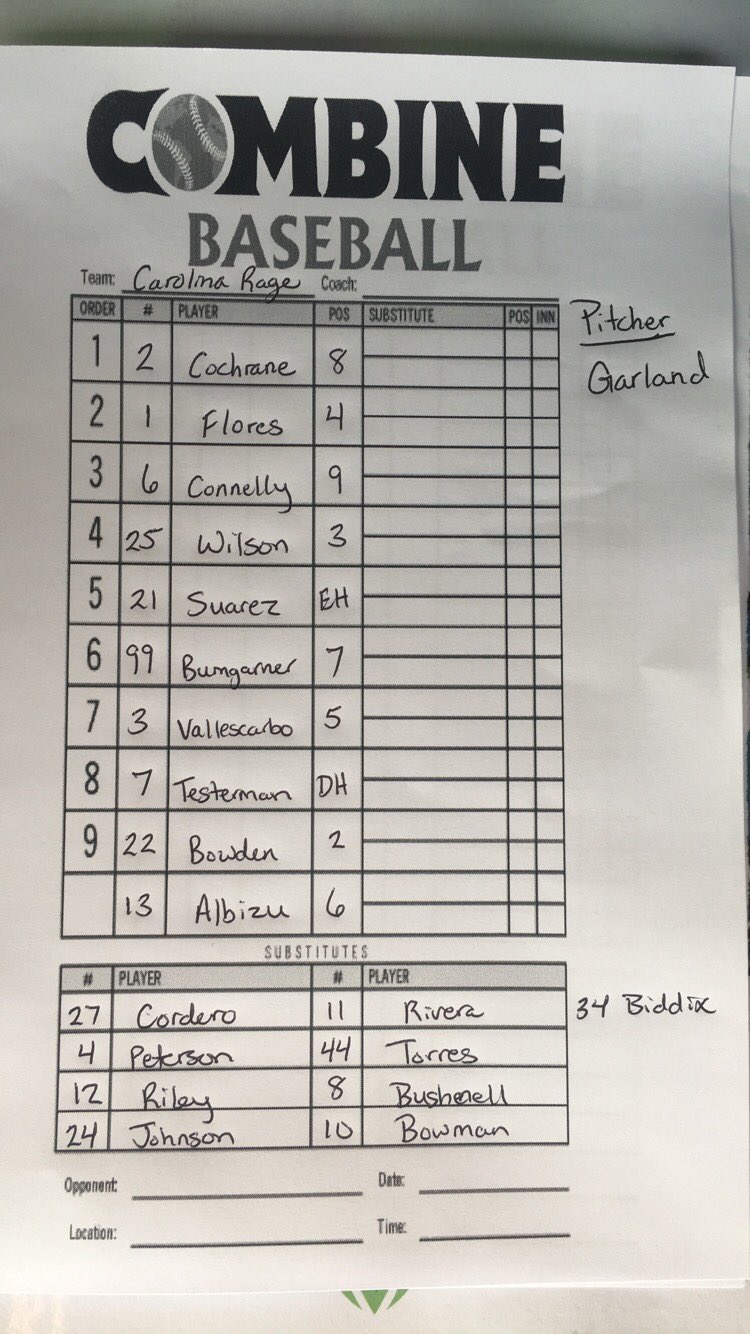 COMBINE
BASEBALL
Team: Carolina Rage Coach:
ORDER # PLAYER POS SUBSTITUTE POS INN
Pitcher
Garland
1 2 Cochrane 8
2 1 Flores 4
3 6 Connelly 9
4 25 Wilson 3
5 21 Suarez EH
6 99 Bumgarner 7
7 3 Vallescarbo 5
8 7 Testerman DH
9 22 Bowden 2
13 Albizu 6
SUBSTITUTES
# PLAYER # PLAYER
27 Cordero 11 Rivera 34 Biddix
4 Peterson 44 Torres
12 Riley 8 Bushnell
24 Johnson 10 Bowman
Opponent: Date:
Location: Time: